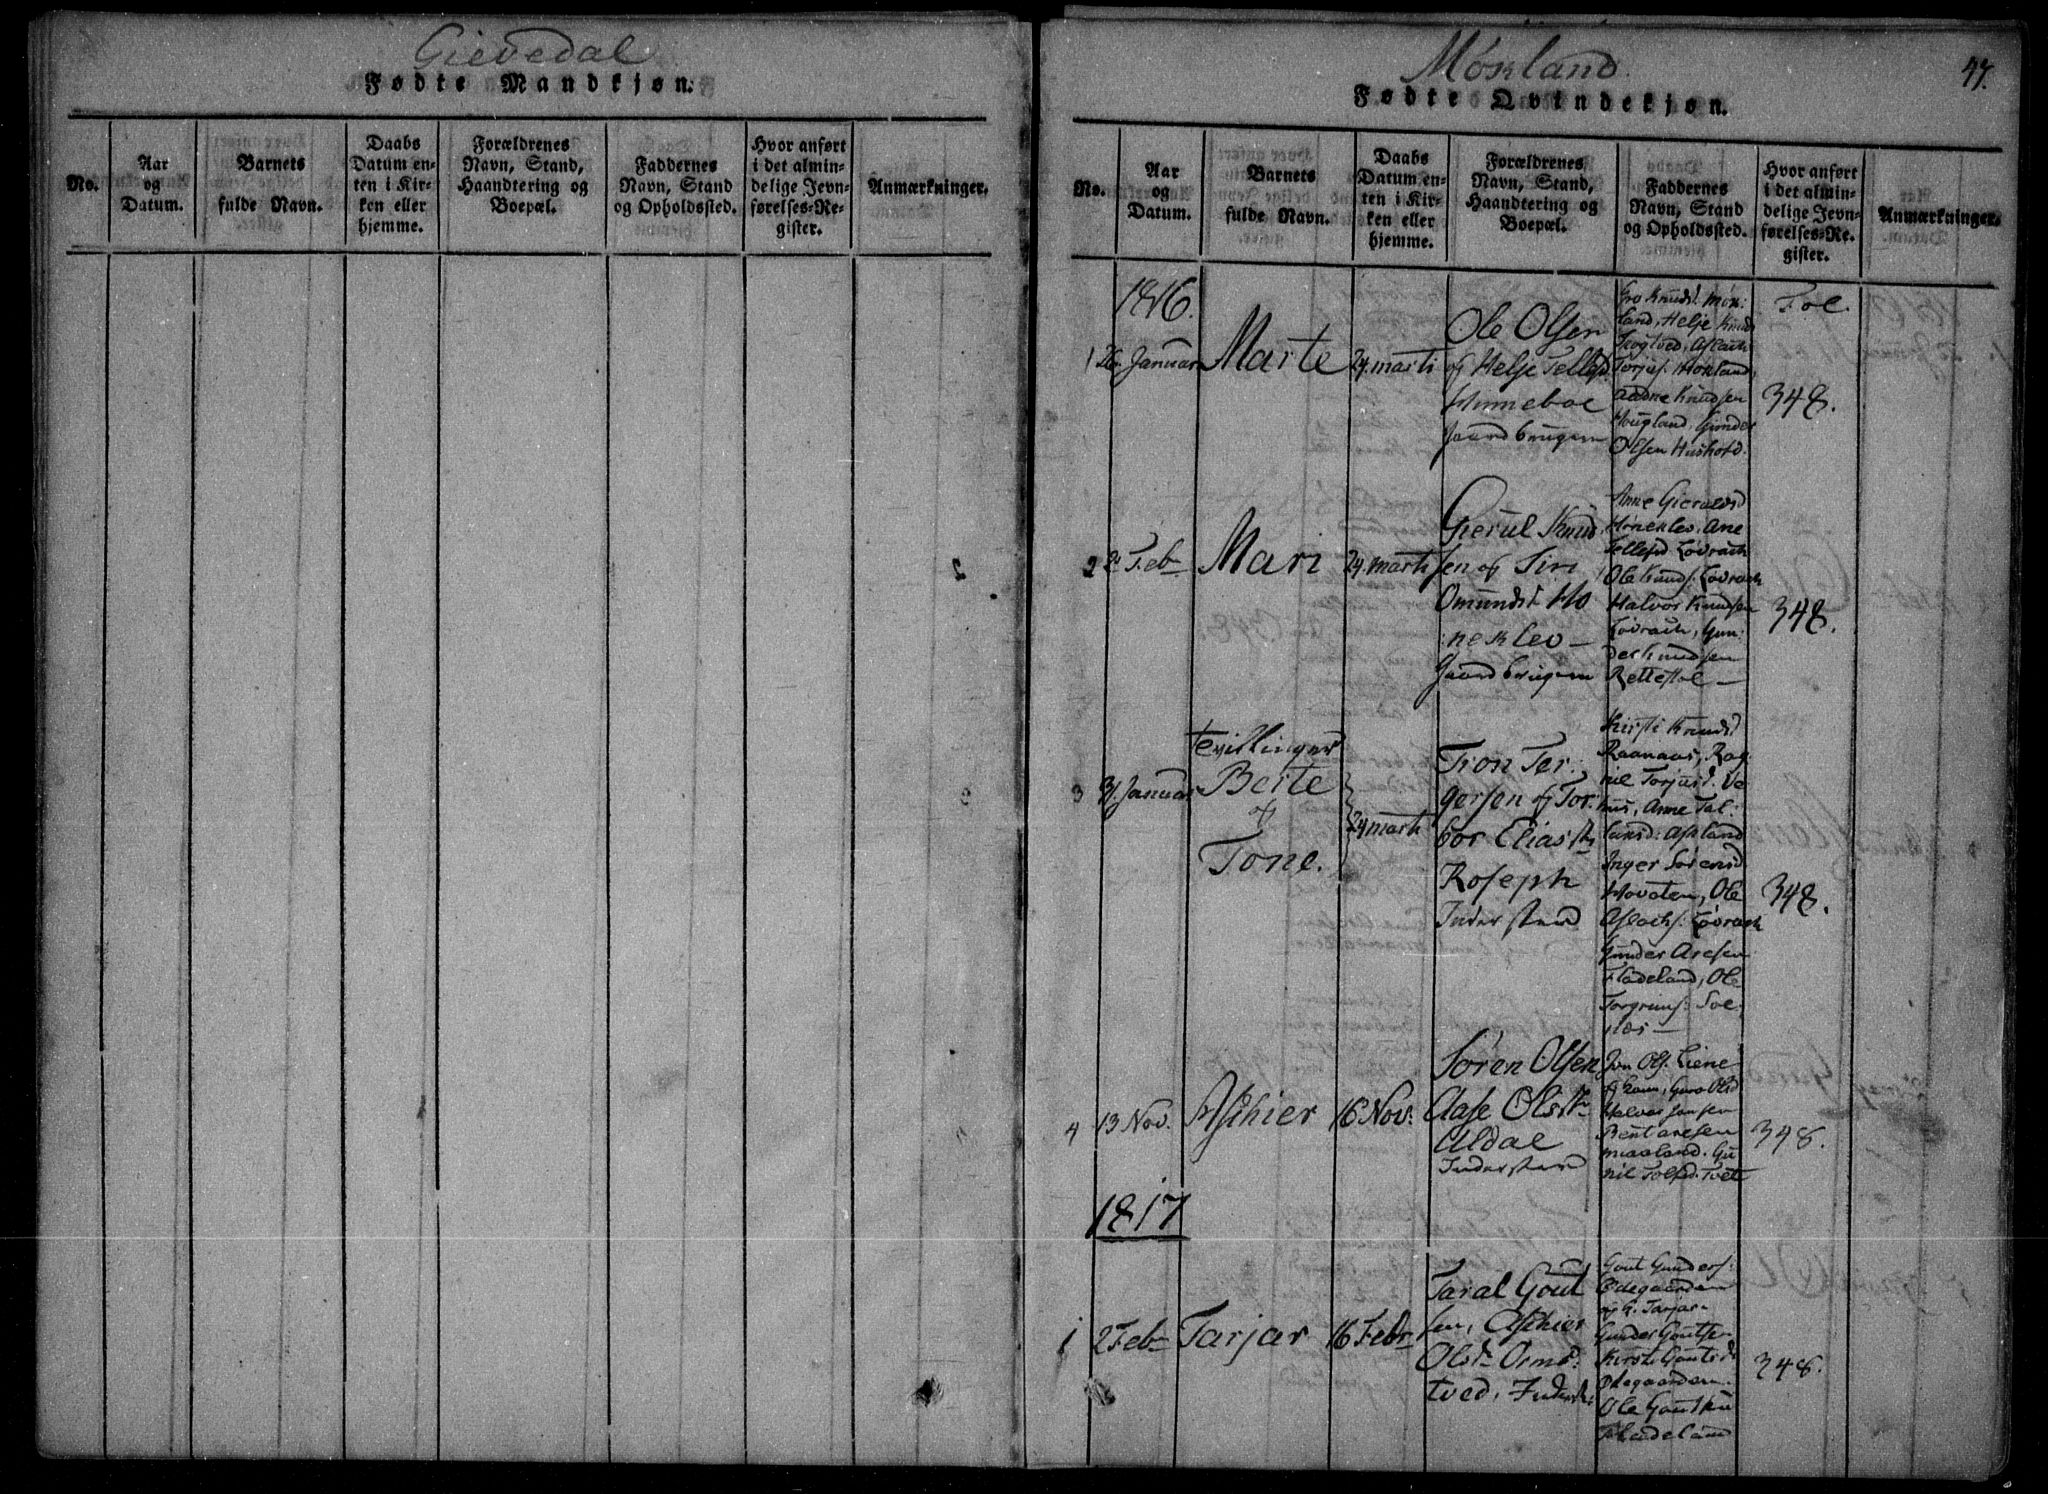 Gievedal
Fødte Mandkjøn:
No.
Aar
og
Datum.
Barnets
fulde Navn.
Daabs
Datum en-
ten i Kir-
ken eller
hjemme.
Forældrenes
Navn, Stand,
Haandtering og
Boepæl.
Faddernes
Navn, Stand
og Opholdssted.
Hvor anført
i det almin-
delige Jevn-
førelses-Re-
gister.
Anmærkninger.
Møskland
47.
Fødte Qvindekjøn.
No.
Aar
og
Datum.
Barnets
fulde Navn.
Daabs
Datum en-
ten i Kir-
ken eller
hjemme.
Forældrenes
Navn, Stand,
Haandtering og
Boepæl.
Faddernes
Navn, Stand
og Opholdssted.
Hvor anført
i det almin-
delige Jevn-
førelses-Re-
gister.
Anmærkninger.
1816.
1
26 Januar
Marte
24 marti
Ole Olsen
og Helje Tellefsd.
Hunneboe
Gaardbrugere
Gro Knudsd. Møk:
land, Helje Knuds
Skogtved, Aslach
Torjus. Mokland,
Aadne Knudsen
Hougland, Gunder
Olsen Hushold.
Foe.
348.
2
2 Feb
Mari
24 marti
Gierul Knud
sen og Siri
Omundsd. Ho
neklev –
Gaardbrugere
Anne Gieruldsd
Honeklev, Ane
Tellefsd Løvrach
Ole Knuds. Løvrach
Halvor Knudsen
Løvrach, Gun:
der Knudsen
Rettestøl –
348.
3
31 Januar
tvillinger
Berte
og
Tone.
24 marti
Tron Ter:
gersen og Tor:
bor Eliasdtr
Roseph
Inderster
Kirsti Knudsd
Raanaas, Rag
nil Torjusd. Ve
hus, Anne Tal:
laksd: Askland
Inger Sørensd
Hovaten, Ole
Aslachs. Løvrach
Gunder Aresen
Fladeland, Ole
Torgrims: Sol
næs –
348.
4
13 Nov.
Aschier
16 Nov.
Søren Olsen
Aase Olsdtr
Aldal
Inderster
Jon Ols. Liene
og kone, Guro Olsd
Halvor Jensen
Bent Aresen
maaland. Gu
nil Tolfsd. Tvet
348.
1817
1
2 Feb
Tarjar
16 Febr
Taral Gout
sen, Aschier
Olsd. Oms:
tved, Inderst:
Gout Gunders:
Ødegaarden
og k. Tarjar
Gunder Goutsen
Kirsti Goutsd
Ødegaarden.
Ole Gout
Fladeland
348.